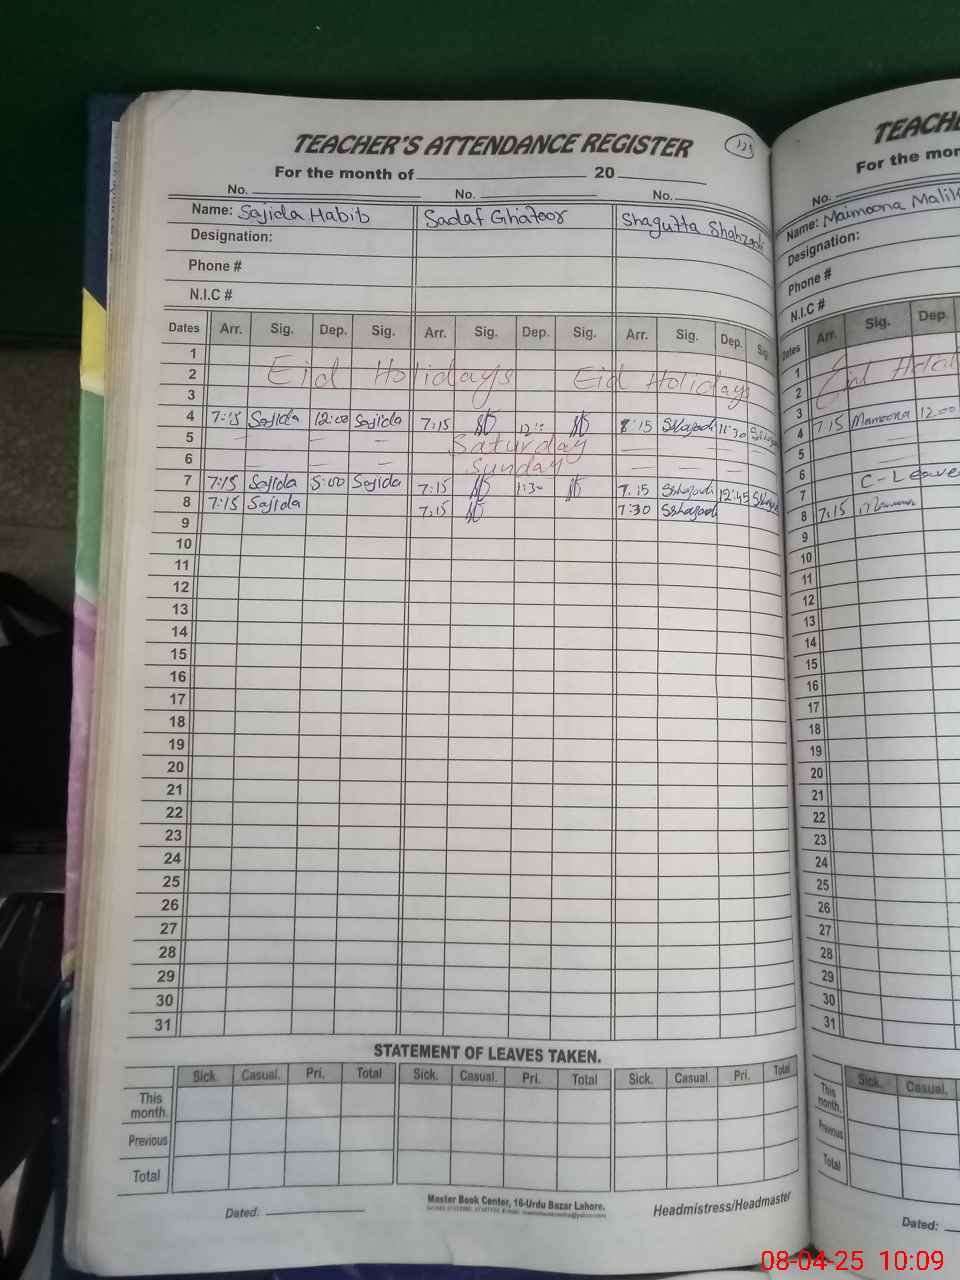 TEACHER'S ATTENDANCE REGISTER
123
For the month of 20
No. No. No.
Name: Sajida Habib Sadaf Ghafoor Shagufta Shahzadi
Designation:
Phone #
N.I.C #
Dates Arr. Sig. Dep. Sig. Arr. Sig. Dep. Sig. Arr. Sig. Dep. Sig
1
2 Eid Holidays Eid Holidays
3
4 7:15 Sajida 12:00 Sajida 7:15 8:15 11:30
5 Saturday
6 Sunday
7 7:15 Sajida 5:00 Sajida 7:15 1:30 7.15 Sshazadi 12:45
8 7:15 Sajida 7:15 7:30 Sshazadi
9
10
11
12
13
14
15
16
17
18
19
20
21
22
23
24
25
26
27
28
29
30
31
STATEMENT OF LEAVES TAKEN.
Sick. Casual. Pri. Total Sick. Casual. Pri. Total Sick. Casual. Pri. Total
This month.
Previous
Total
Dated:
Master Book Center, 16-Urdu Bazar Lahore.
Headmistress/Headmaster
TEACHE
For the mon
No.
Name: Maimoona Malik
Designation:
Phone #
N.I.C #
Dates Arr. Sig. Dep.
1 Eid Holi
2
3
4 7 15 Mamoona 12:00
5
6
7 C-Leave
8 7:15
9
10
11
12
13
14
15
16
17
18
19
20
21
22
23
24
25
26
27
28
29
30
31
Sick. Casual.
This month.
Previous
Total
Dated:
08-04-25 10:09